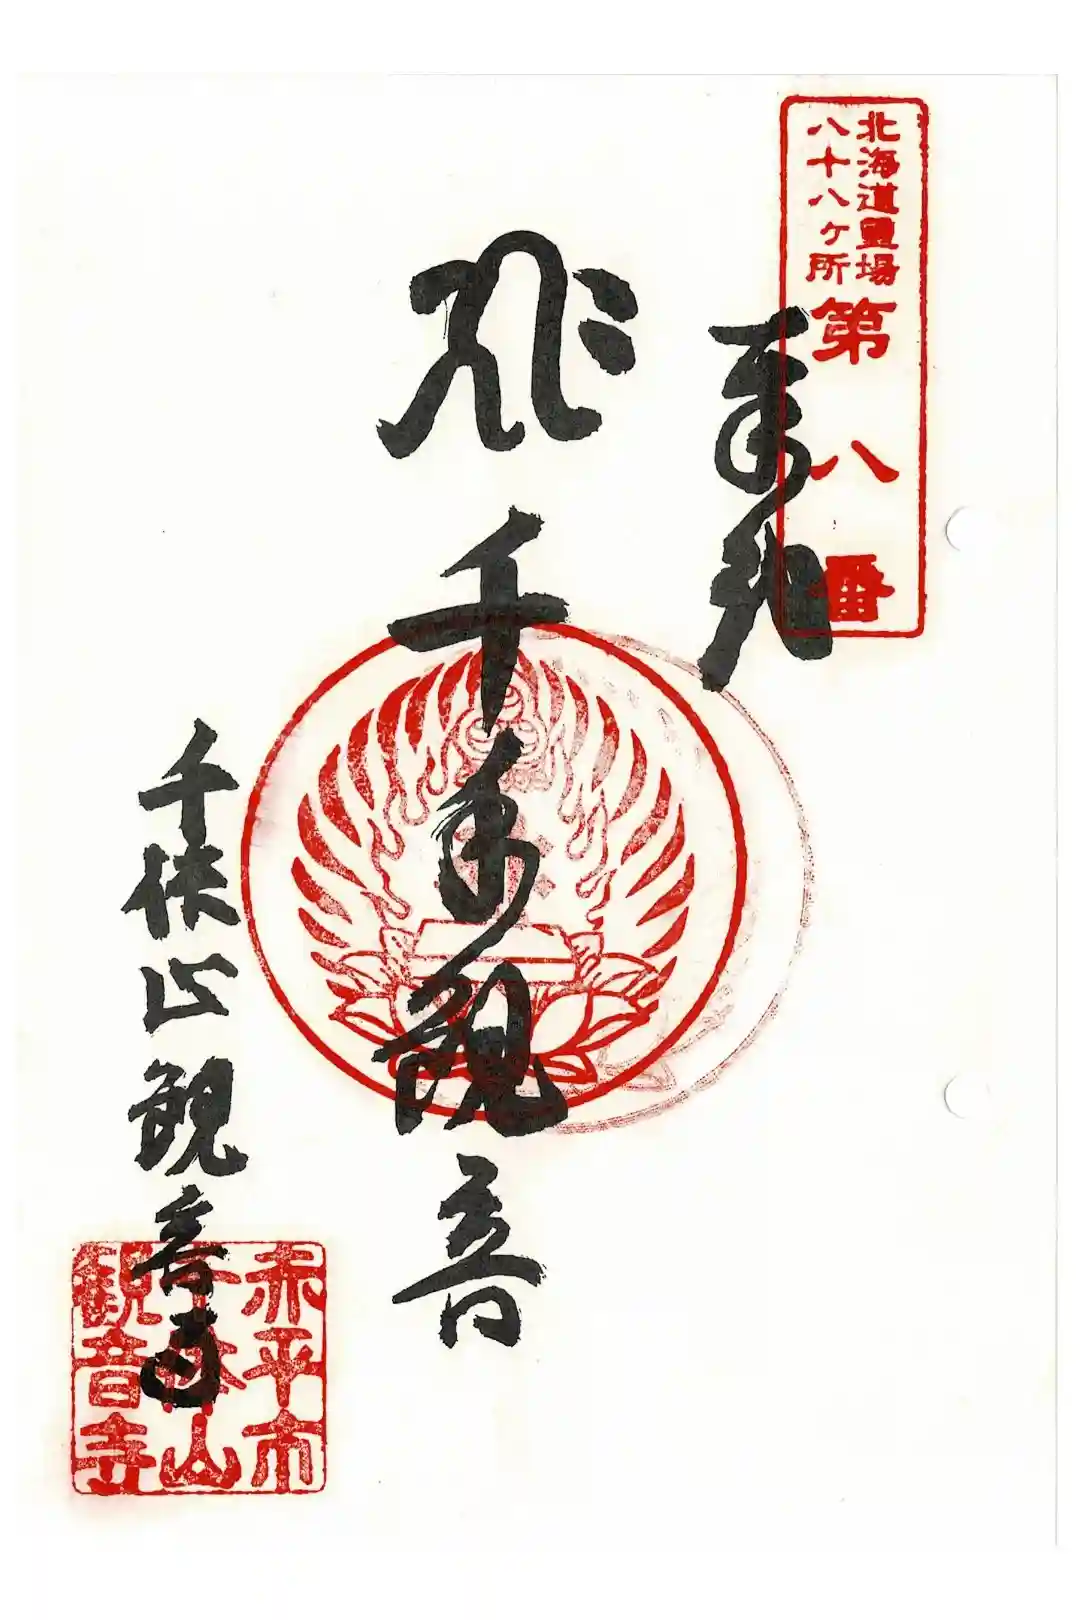 北海道霊場
八十八ヶ所
第八番
奉拝
千手観音
千体山観音寺
赤平市
千体山
観音寺